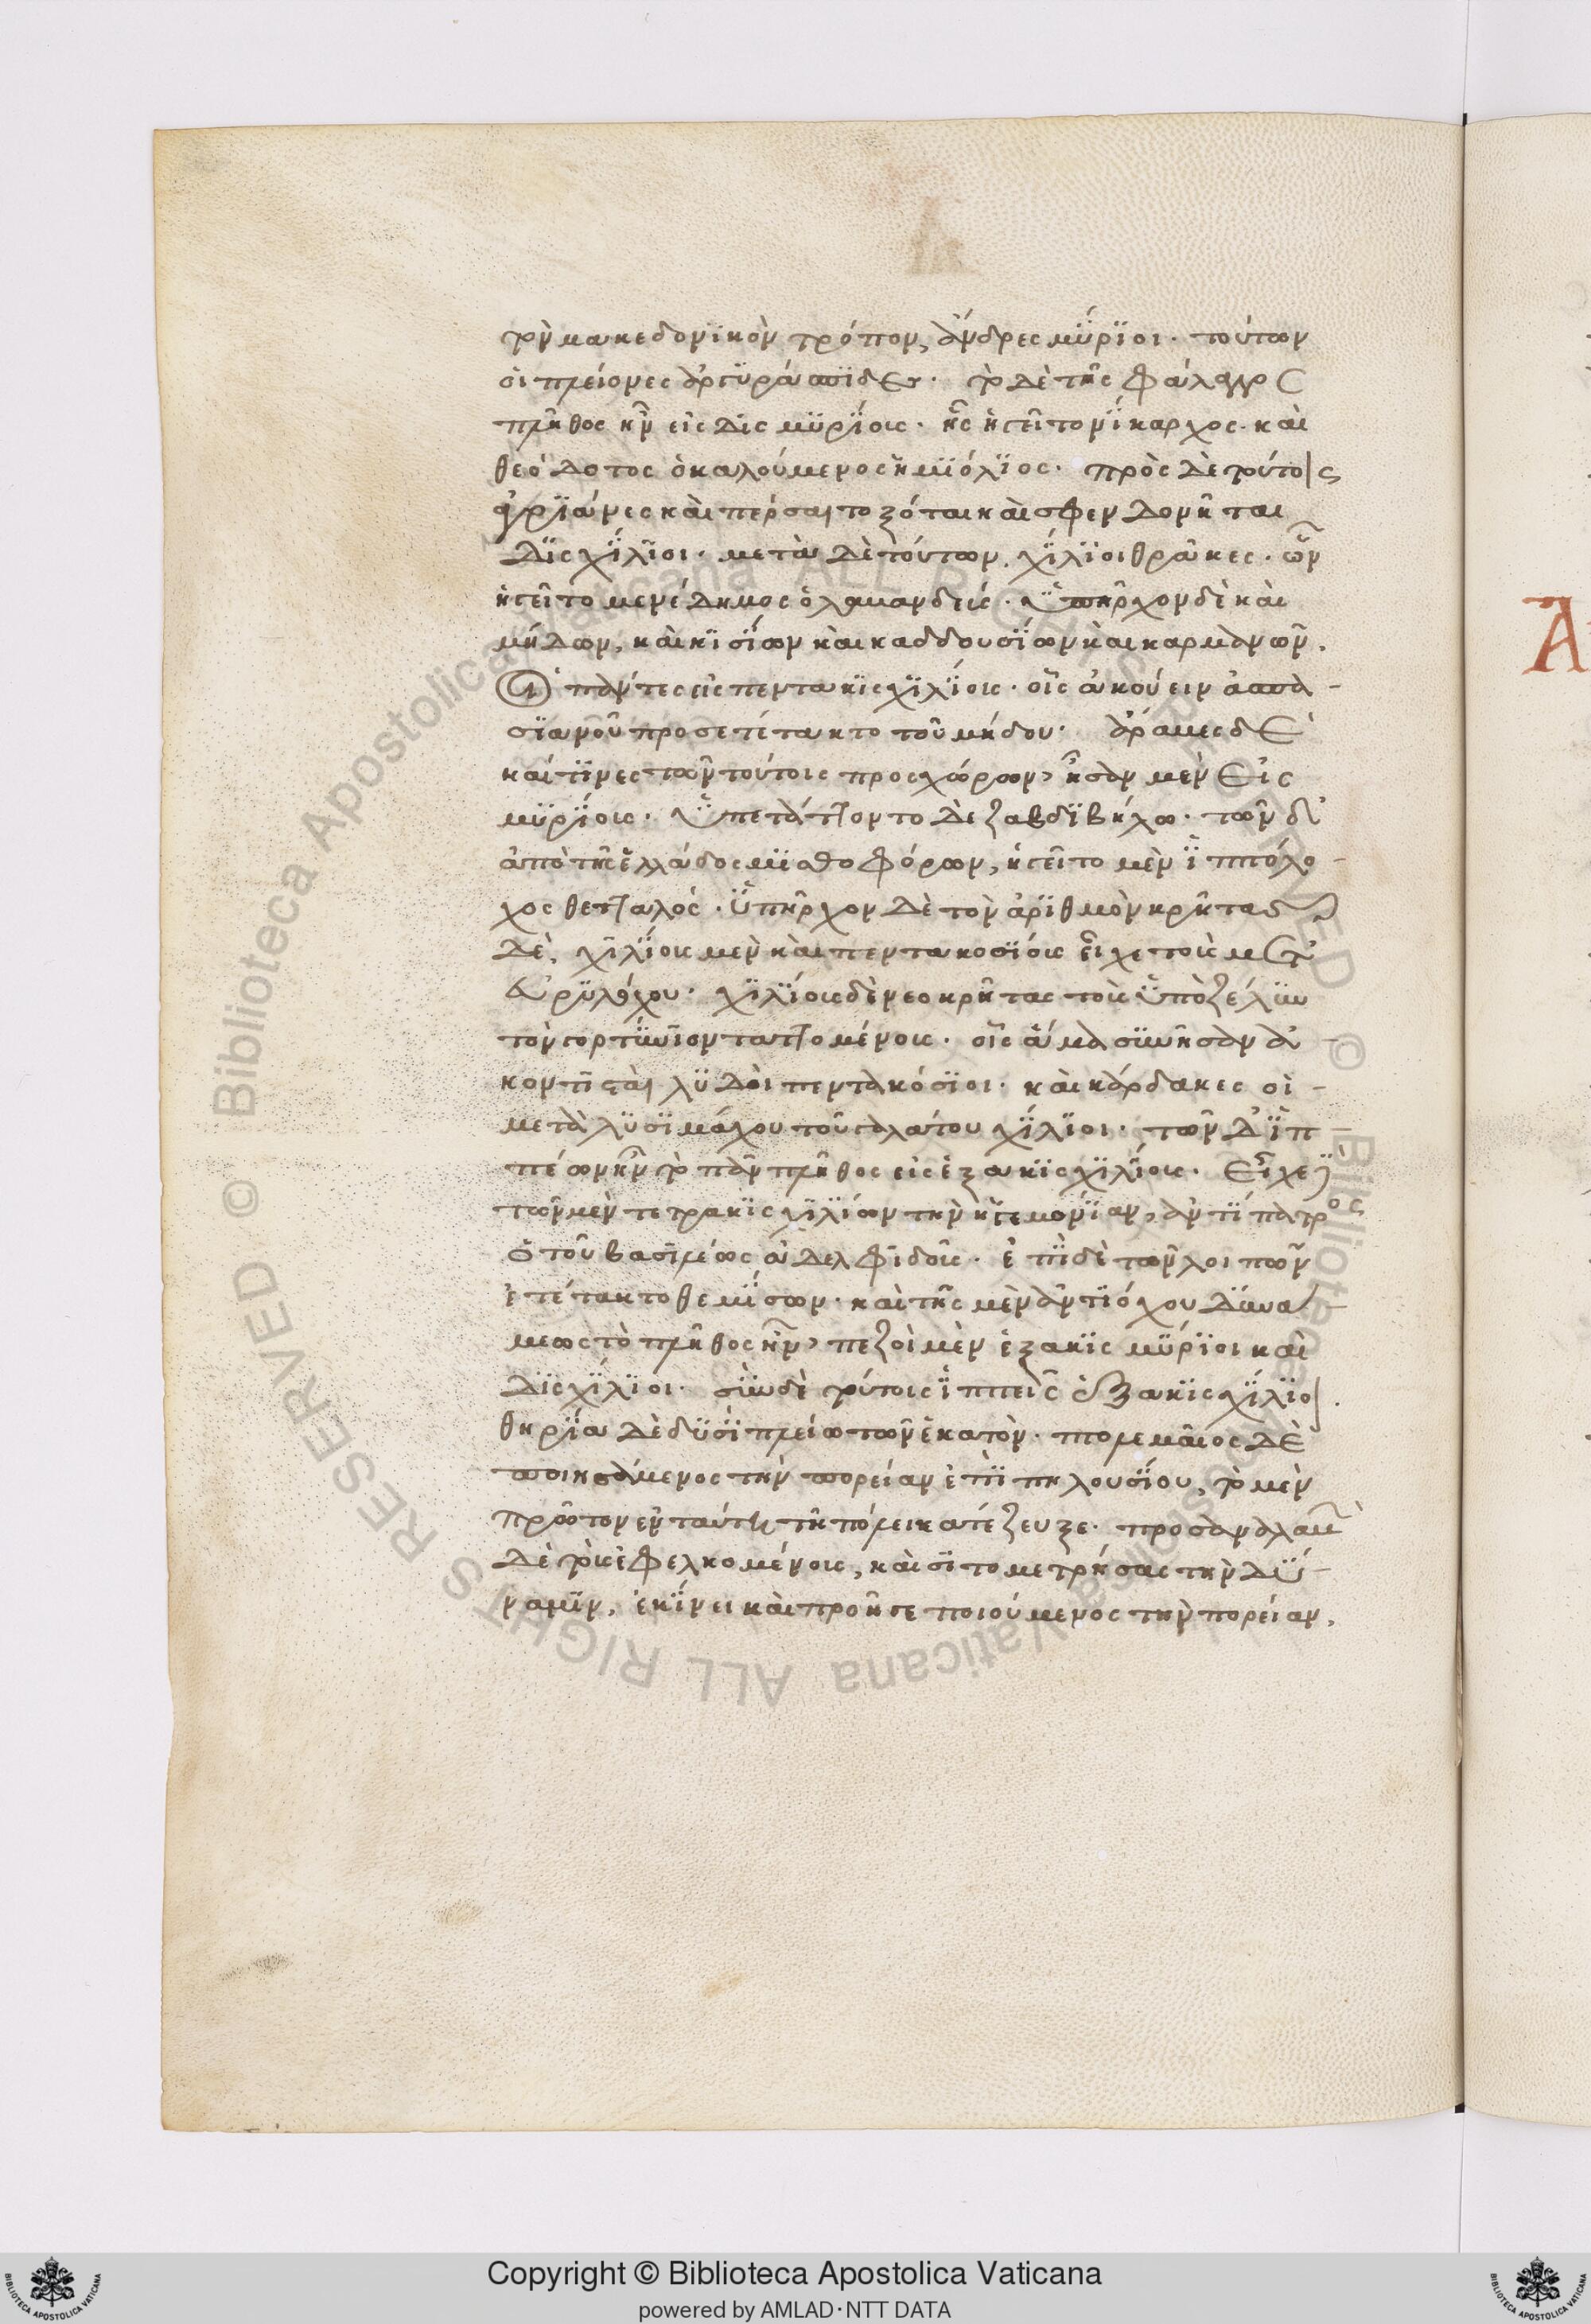 τὸν μακεδονϊκὸν τρόπον, ἄνδρες μΰρϊοι. τούτων
οἱ πλείονες ἀργϋράσπϊδες. τὸ δὲ τῆς φάλαγγος
πλῆθος ἦν εἰς δὶς μϋρΐους. ἧς ἡγεῖτο νΐκαρχος καὶ
θεόδοτος ὁ καλούμενος ἡμϊόλϊος. πρὸς δὲ τούτοις
ἀγρϊάνες καὶ πέρσαι τοξόται καὶ σφενδονῆται
δϊσχΐλϊοι. μετὰ δὲ τούτων χΐλϊοι θρᾶκες. ὧν
ἡγεῖτο μενέδημος ὁ λαμανδεύς. ὑπῆρχον δὲ καὶ
μήδων, καὶ κϊσΐων καὶ καδδουσΐων καὶ καρμανῶν.
οἱ πάντες εἰς πεντακϊσχϊλΐους. οἷς ἀκούειν ἀσπα-
σϊανοῦ προσετέτακτο τοῦ μήδου. ἄραβες δὲ
καί τϊνες τῶν τούτοις προσχώρων, ἦσαν μὲν εἰς
μϋρΐους. ὑπετάττοντο δὲ ζαβδϊβήλω. τῶν δ'
ἀπὸ τῆς ἑλλάδος μϊσθοφόρων, ἡγεῖτο μὲν ἱππόλο-
χος θετταλός. ὑπῆρχον δὲ τὸν ἀρϊθμὸν κρῆτας
δὲ, χϊλΐους μὲν καὶ πεντακοσΐους εἶχε τοὺς μετ'
εὐρϋλόχου. χϊλΐους δὲ νεοκρῆτας τοὺς ὑπὸ ζέλυν
τὸν γορτύνϊον ταττομένους. οἷς ἅμα συνῆσαν ἀ-
κοντϊσταὶ λϋδοὶ πεντακόσϊοι. καὶ κάρδακες οἱ-
μετὰ λϋσϊμάχου τοῦ γαλάτου χΐλϊοι. τῶν δ' ἱπ-
πέων ἦν τὸ πᾶν πλῆθος εἰς ἑξακϊσχϊλΐους. εἶχε δὲ
τῶν μὲν τετρακϊσχϊλΐων τὴν ἡγεμονΐαν, ἀντΐπατρος
ὁ τοῦ βασϊλέως ἀδελφϊδοῦς. ἐπὶ δὲ τῶν λοιπῶν
ἐτέτακτο θεμΐσων. καὶ τῆς μὲν ἀντϊόχου δυνά-
μεως τὸ πλῆθος ἦν, πεζοὶ μὲν ἑξακϊς μΰρϊοι καὶ
δϊσχΐλϊοι. σὺν δὲ τούτοις ἱππεῖς ἑξακϊσχΐλϊοι.
θηρΐα δὲ δϋσὶ πλείω τῶν ἑκατόν. πτολεμαῖος δὲ
ποιησάμενος τὴν πορείαν ἐπὶ πηλουσΐου, τὸ μὲν
πρῶτον ἐν ταύτη τῆ πόλει κατέζευξε. προσαναλαβὼν
δὲ τοὺς ἐφελκομένους, καὶ σϊτομετρήσας τὴν δύ-
ναμϊν, ἐκΐνει καὶ προῆγε ποιούμενος τὴν πορείαν,
Α
Copyright © Biblioteca Apostolica Vaticana
powered by AMLAD·NTT DATA